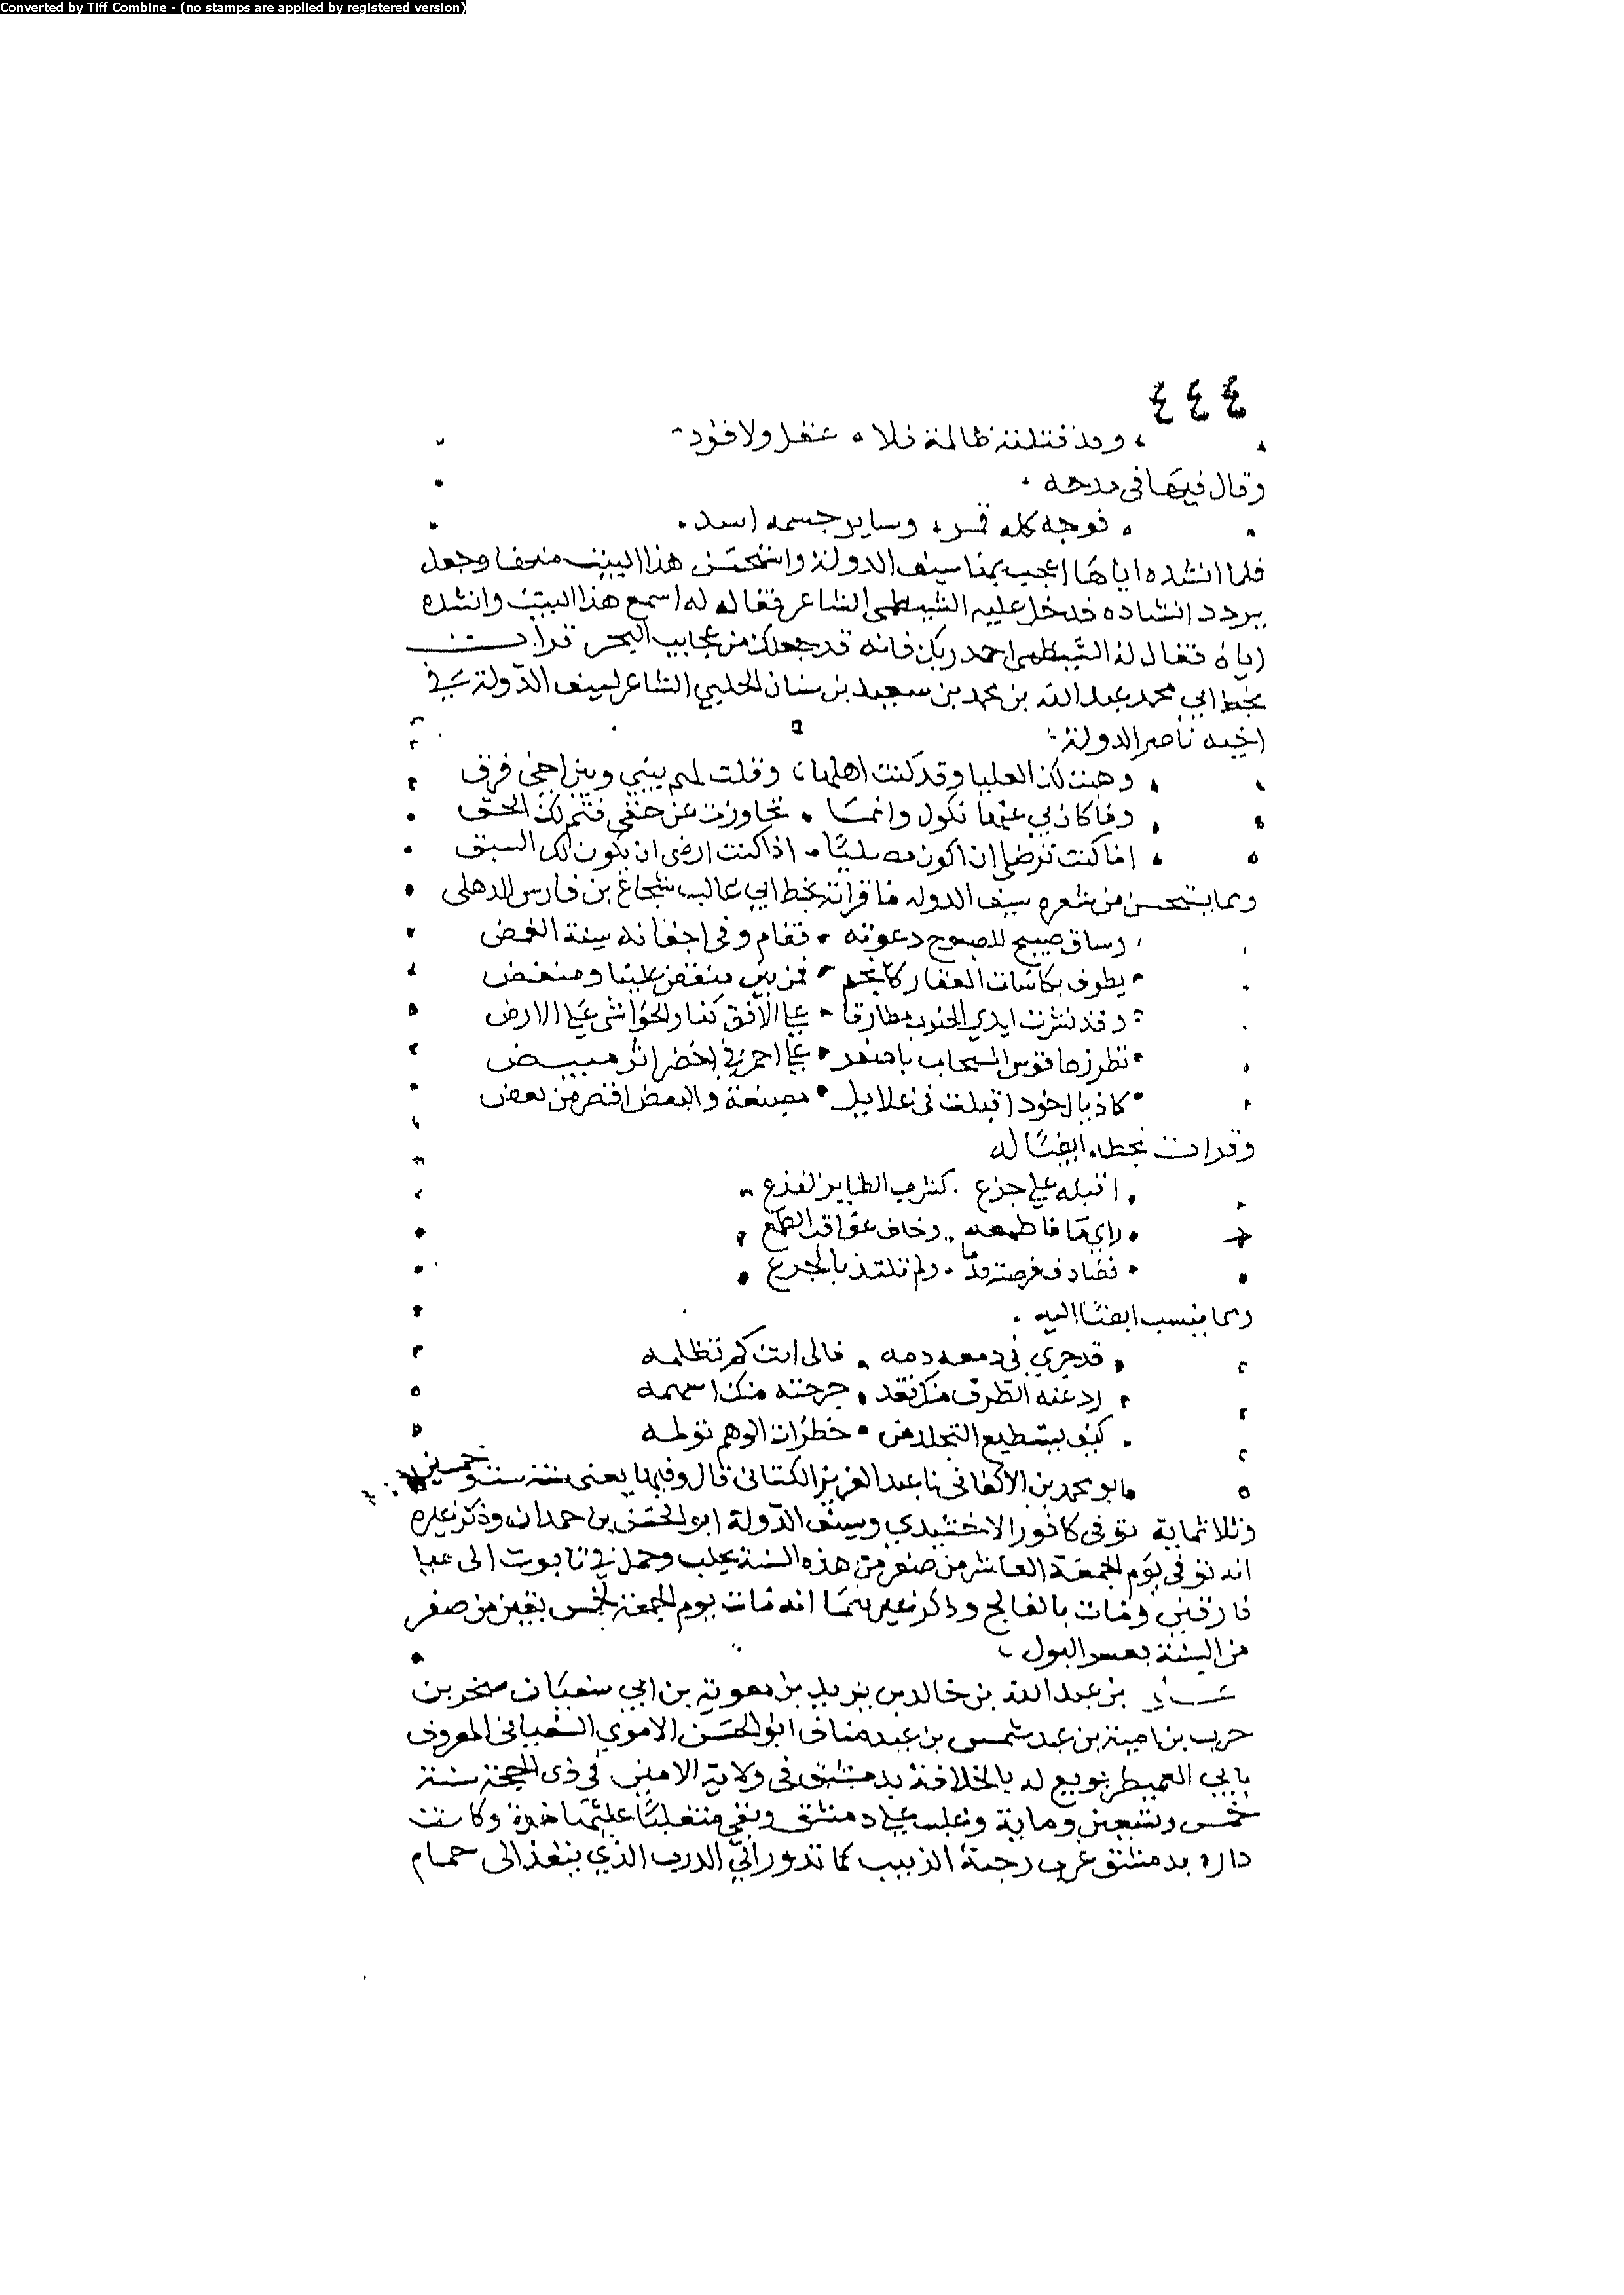 Converted by Tiff Combine - (no stamps are applied by registered version)
٤٤٤
وقد قتلته ظالمة فلا عقل ولا قود
وقال فيها في مدحه
فوجه كله قمر وساير جسمه اسد
فلما انشده اياها اعجب بها سيف الدولة واستحسن هذا البيت منها وجعل
يردد انشاده فدخل عليه الشيظمي الشاعر فقال له اسمع هذا البيت وانشده
اياه فقال له الشيظمي احمد ربك فانه قد جعلك من عجايب البحر قرات
بخط ابي محمد عبد الله بن محمد بن سعيد بن سنان الحلبي الشاعر لسيف الدولة في
اخيه ناصر الدولة
وهبت لك العليا وقد كنت اهلها وقلت لهم بيني وبين اخي فرق
وما كان بي عنها نكول وانما تجاوزت عن حقي فتم لك الحق
اما كنت ترضى ان اكون مصليا اذا كنت ارضى ان يكون لك السبق
ومما يستحسن من شعر سيف الدوله ما قراته بخط ابي غالب شجاع بن فارس الذهلي
وساق صبيح للصبوح دعوته فقام وفي اجفانه سنة الغمض
يطوف بكاسات العقار كانجم فمن بين منقض علينا ومنفض
وقد نشرت ايدي الجنوب مطارقا على الافق كنا والحواشي على الارض
تطرزها قوس السحاب باصفر على احمر في اخضر اثر مبيض
كاذيال خود اقبلت في غلايل مصبغة والبعض اقصر من بعض
وقرات بخطه ايضا له
اقبله على جزع كشرب الطاير الفزع
راى ما فاطمعه وخاف عواقب الطمع
فصادف فرصة فدنا ولم تلتذ بالجرع
ومما ينسب ايضا اليه
قد جرى في دمعه دمه فالى انت كم تظلمه
رد عنه الطرف منك فقد جرحته منك اسهمه
كيف يستطيع التجلد من خطرات الوهم تولمه
ابو محمد بن الاكفاني نا عبد العزيز الكتاني قال وفيها يعني سنة ست وخمسين
وثلاثماية توفي كافور الاخشيدي وسيف الدولة ابو الحسن بن حمدان وذكر غيره
انه توفي يوم الجمعة العاشر من صفر من هذه السنة بحلب وحمل في تابوت الى ميا
فارقين ومات بالفالج وذكر غيرهما انه مات يوم الجمعة لخمس بقين من صفر
من السنة بعسر البول
بن عبد الله بن خالد بن يزيد بن معوية بن ابي سفيان صخر بن
حرب بن امية بن عبد شمس بن عبد مناف ابو الحسن الاموي السفياني المعروف
بابي العميطر بويع له بالخلافة بدمشق في ولاية الامين في ذي الحجة سنة
خمس وتسعين وماية وغلب على دمشق وبقي متغلبا عليها مدة وكانت
داره بدمشق غرب رحبة الزبيب كما تدور الى الدرب الذي ينفذ الى حمام